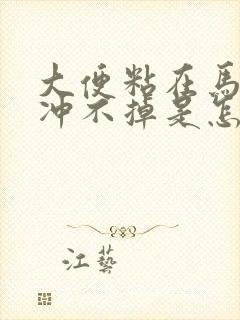 大便粘在馬
沖不掉是怎
江藝